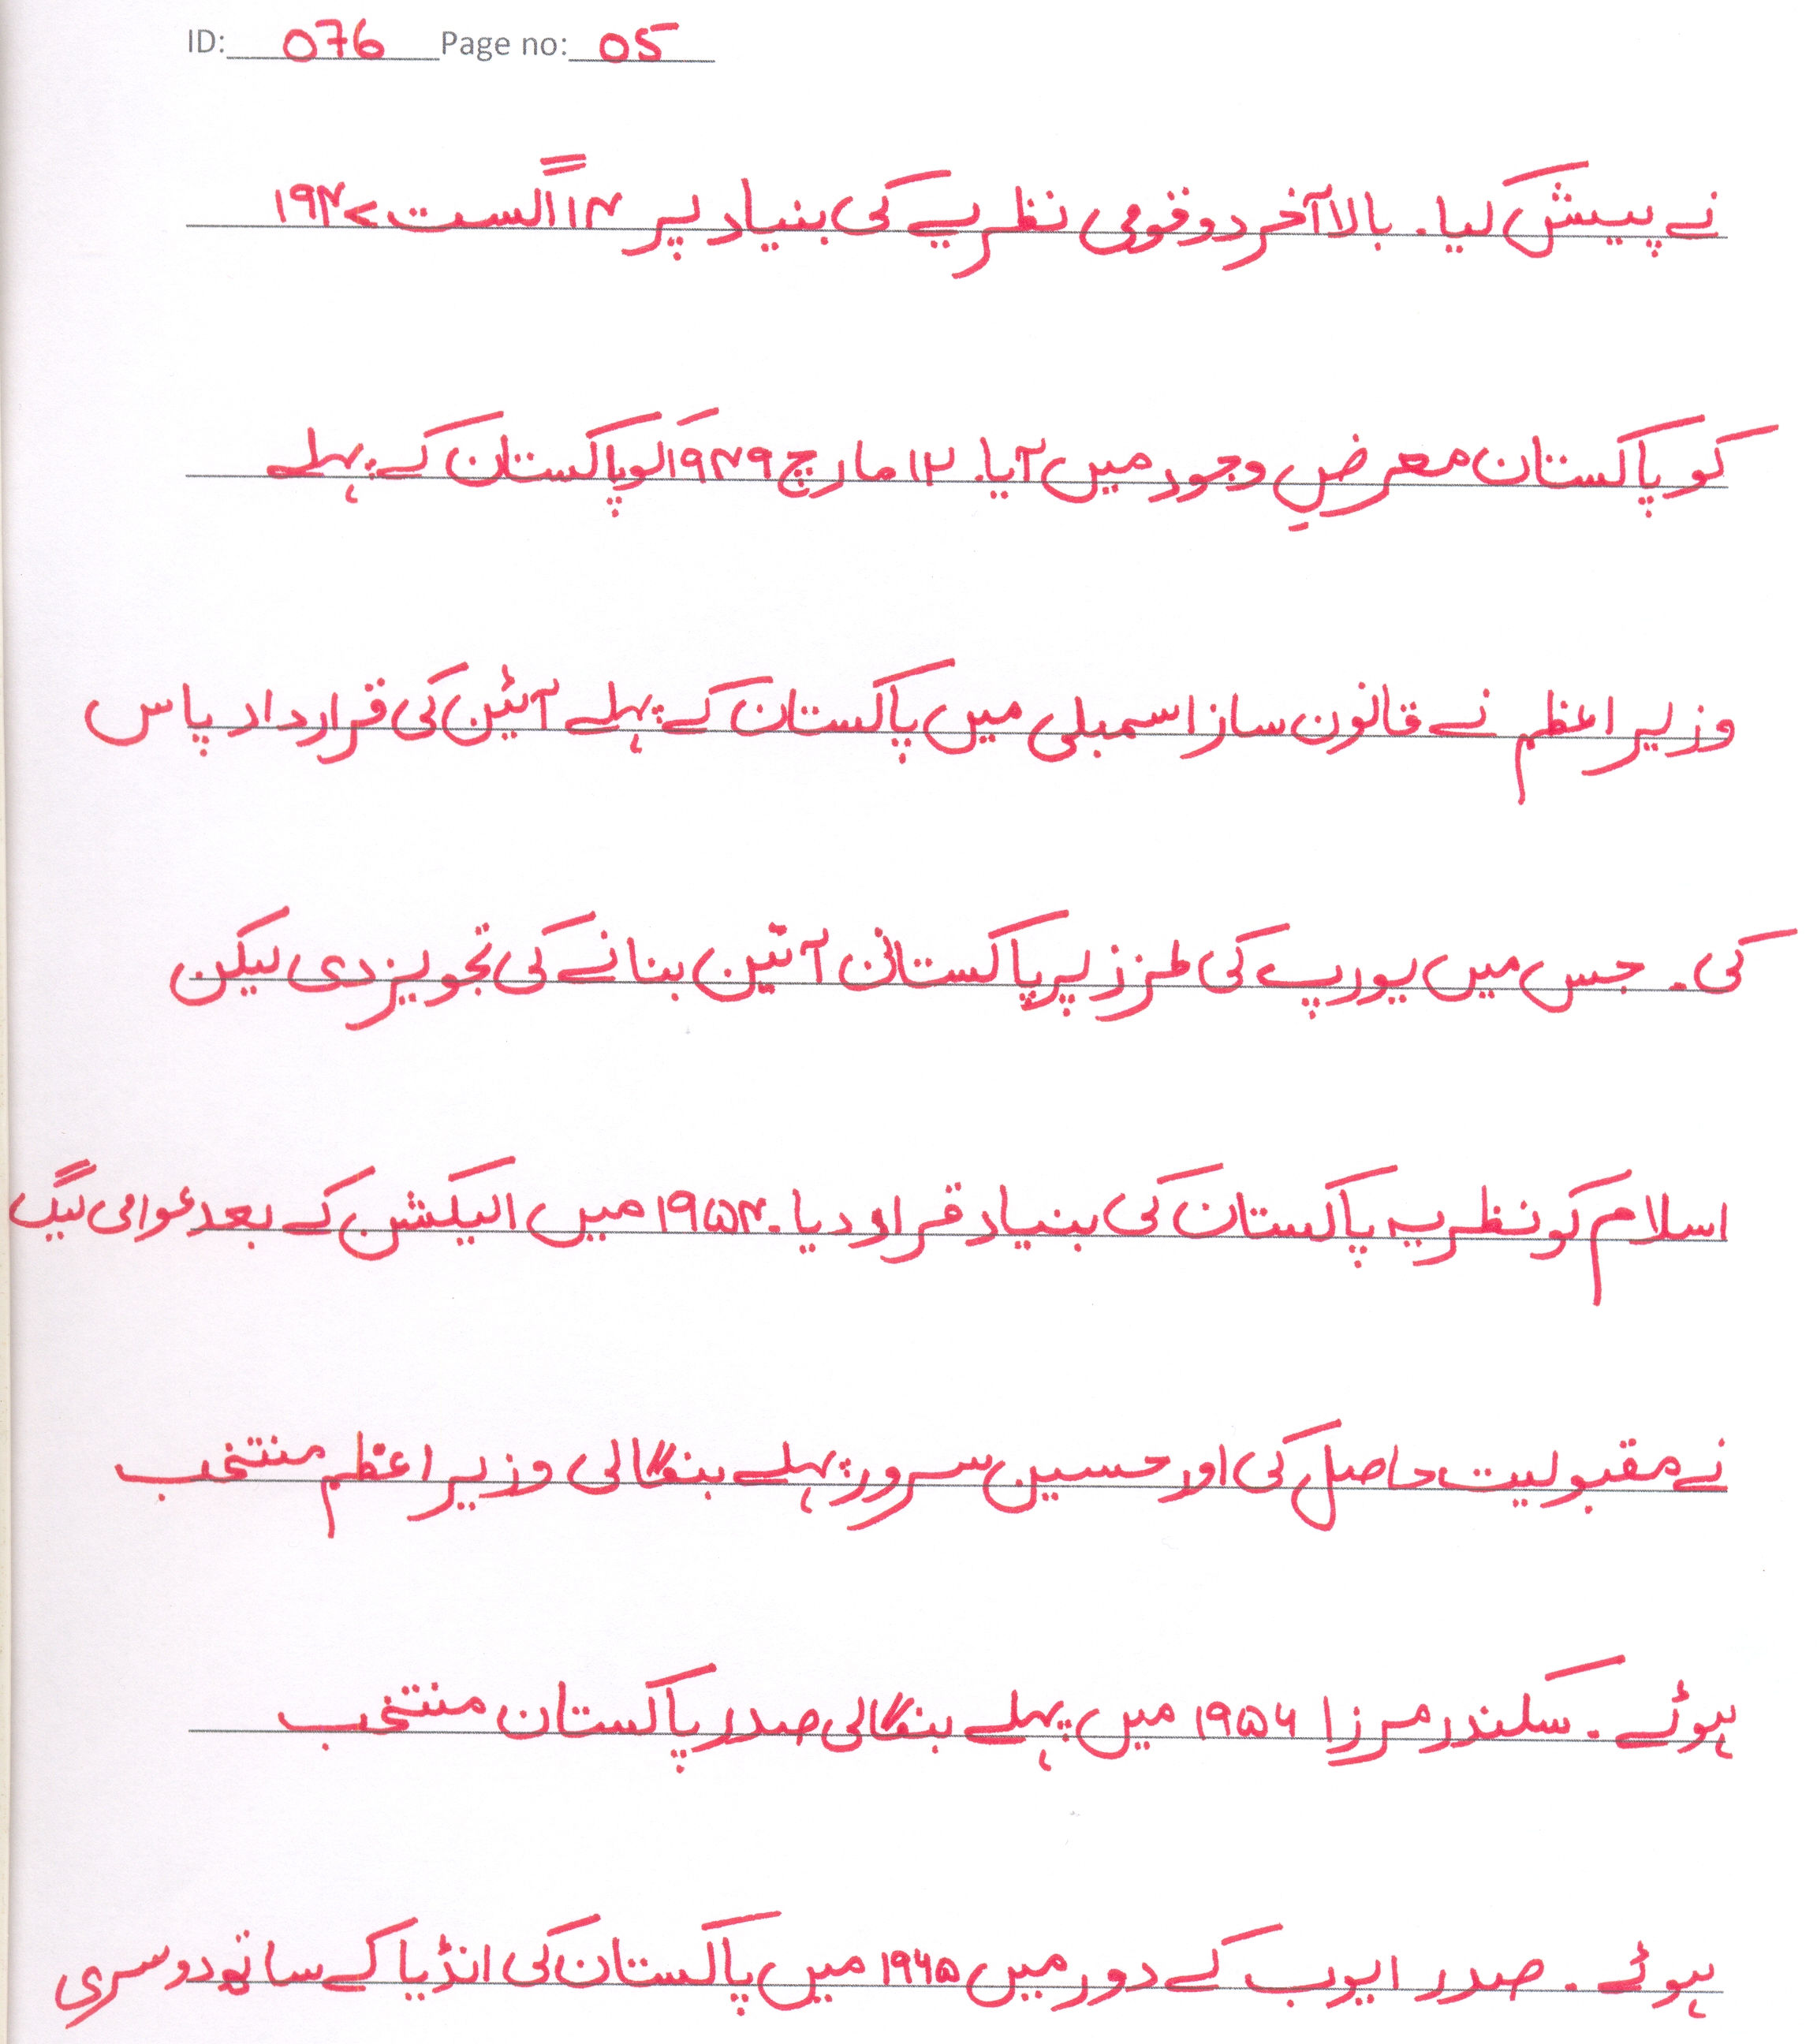 ID: 076 Page no: 05
نے پیش کیا۔ بالاآخر دو قومی نظریے کی بنیاد پر ۱۴ اگست ۱۹۴۷
کو پاکستان معرضِ وجود میں آیا۔ ۱۲ مارچ ۱۹۴۹ کو پاکستان کے پہلے
وزیراعظم نے قانون ساز اسمبلی میں پاکستان کے پہلے آئین کی قرارداد پاس
کی۔ جس میں یورپ کی طرز پر پاکستان آئین بنانے کی تجویز دی لیکن
اسلام کو نظریہ پاکستان کی بنیاد قرار دیا۔ ۱۹۵۴ میں الیکشن کے بعد عوامی لیگ
نے مقبولیت حاصل کی اور حسین سرور پہلے بنگالی وزیراعظم منتخب
ہوئے۔ سکندر مرزا ۱۹۵۶ میں پہلے بنگالی صدر پاکستان منتخب
ہوئے۔ صدر ایوب کے دور میں ۱۹۶۵ میں پاکستان کی انڈیا کے ساتھ دوسری